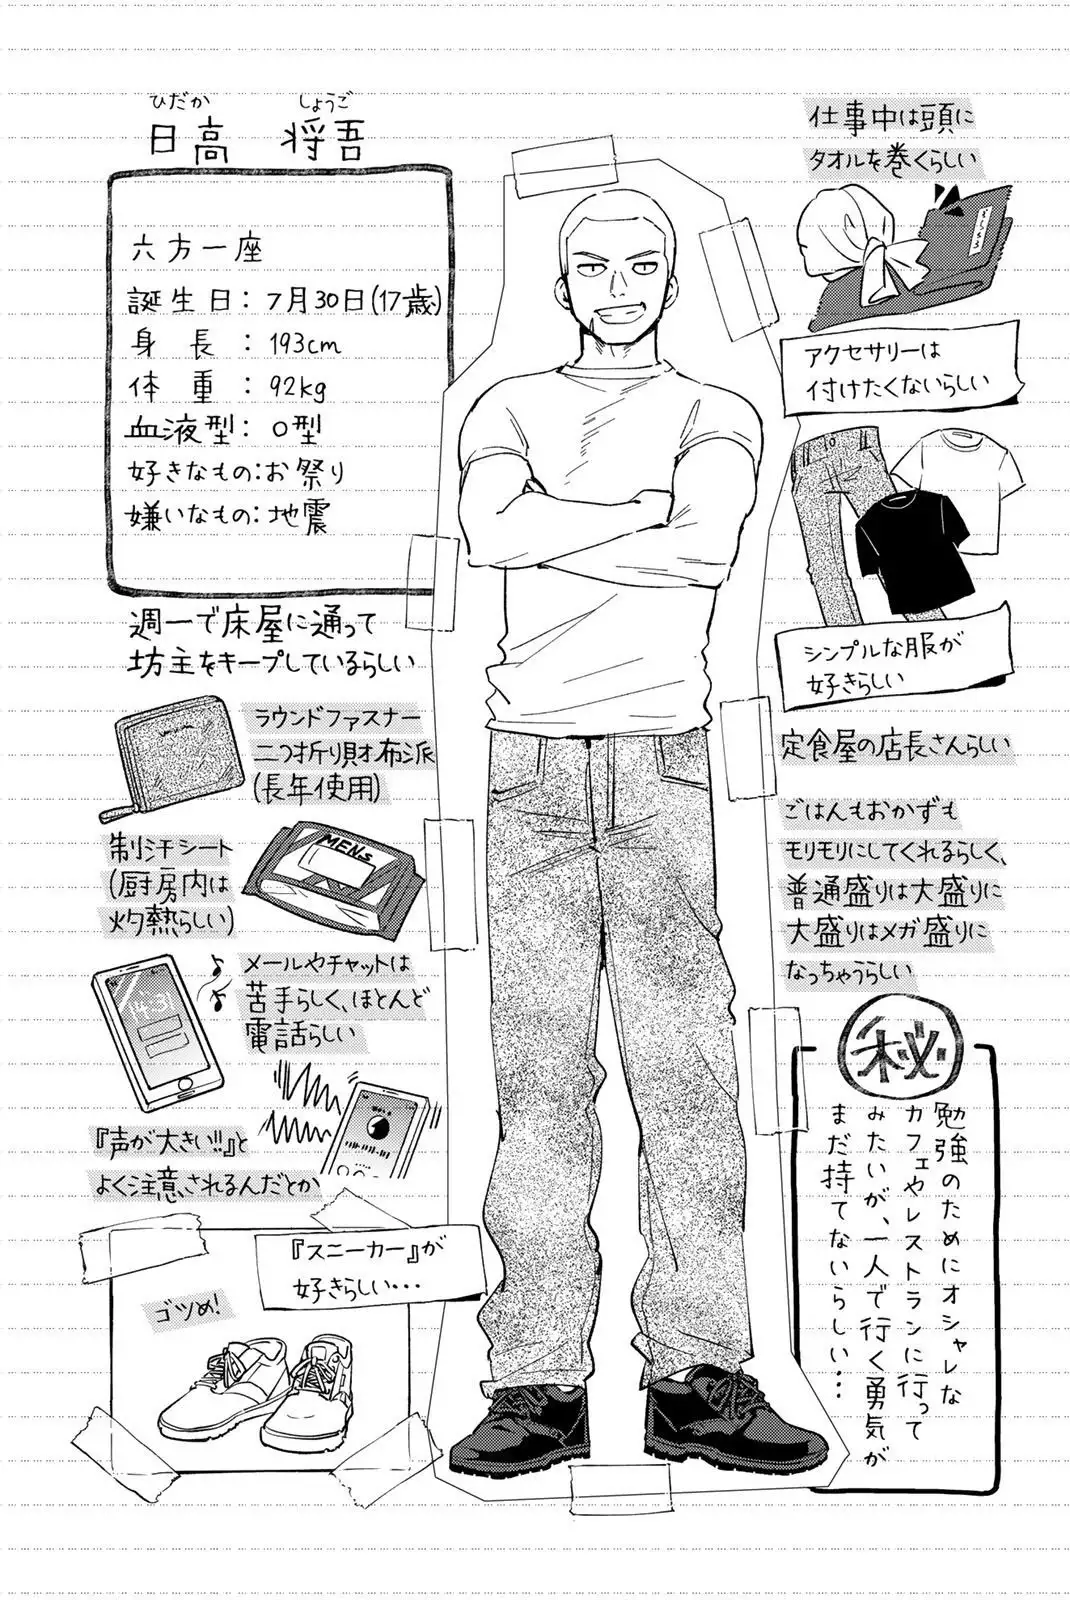 ひだか しょうご
日高 将吾
六方一座
誕生日：7月30日(17歳)
身長：193cm
体重：92kg
血液型：O型
好きなもの：お祭り
嫌いなもの：地震
週一で床屋に通って
坊主をキープしているらしい
ラウンドファスナー
二つ折り財布派
(長年使用)
制汗シート
(厨房内は
灼熱らしい)
MENs
メールやチャットは
苦手らしく、ほとんど
電話らしい
14:31
『声が大きい!!』と
よく注意されるんだとか
『スニーカー』が
好きらしい・・・
ゴツめ!
仕事中は頭に
タオルを巻くらしい
アクセサリーは
付けたくないらしい
シンプルな服が
好きらしい
定食屋の店長さんらしい
ごはんもおかずも
モリモリにしてくれるらしく、
普通盛りは大盛りに
大盛りはメガ盛りに
なっちゃうらしい
秘
勉強のためにオシャレな
カフェやレストランに行って
みたいが、一人で行く勇気が
まだ持てないらしい・・・